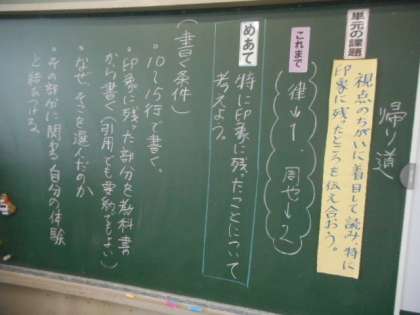 帰り道
単元の課題
視点のちがいに着目して読み、特に
印象に残ったところを伝え合おう。
これまで
律→1 周也→2
めあて
特に印象に残ったことについて
考えよう。
(書く条件)
・10～15行で書く。
・印象に残った部分を教科書
から書く(引用でも要約でもよい)
・なぜそこを選んだのか
・その部分に関する自分の体験
と結びつける